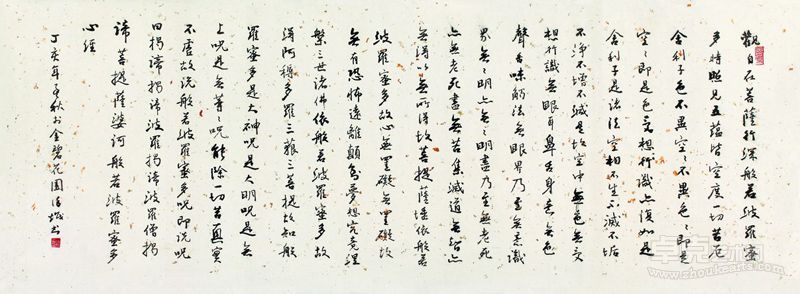 觀自在菩薩行深般若波羅蜜
多時照見五蘊皆空度一切苦厄
舍利子色不異空空不異色色即是
空空即是色受想行識亦復如是
舍利子是諸法空相不生不滅不垢
不淨不增不減是故空中無色無受
想行識無眼耳鼻舌身意無色
聲香味觸法無眼界乃至無意識
界無無明亦無無明盡乃至無老死
亦無老死盡無苦集滅道無智亦
無得以無所得故菩提薩埵依般若
波羅蜜多故心無罣礙無罣礙故
無有恐怖遠離顛倒夢想究竟涅
槃三世諸佛依般若波羅蜜多故
得阿耨多羅三藐三菩提故知般
羅蜜多是大神咒是大明咒是無
上咒是無等等咒能除一切苦真實
不虛故說般若波羅蜜多咒即說咒
曰揭諦揭諦波羅揭諦波羅僧揭
諦菩提薩婆訶般若波羅蜜多
心經
丁亥年秋於金碧花園
卓克艺术网
www.zhoukearts.com